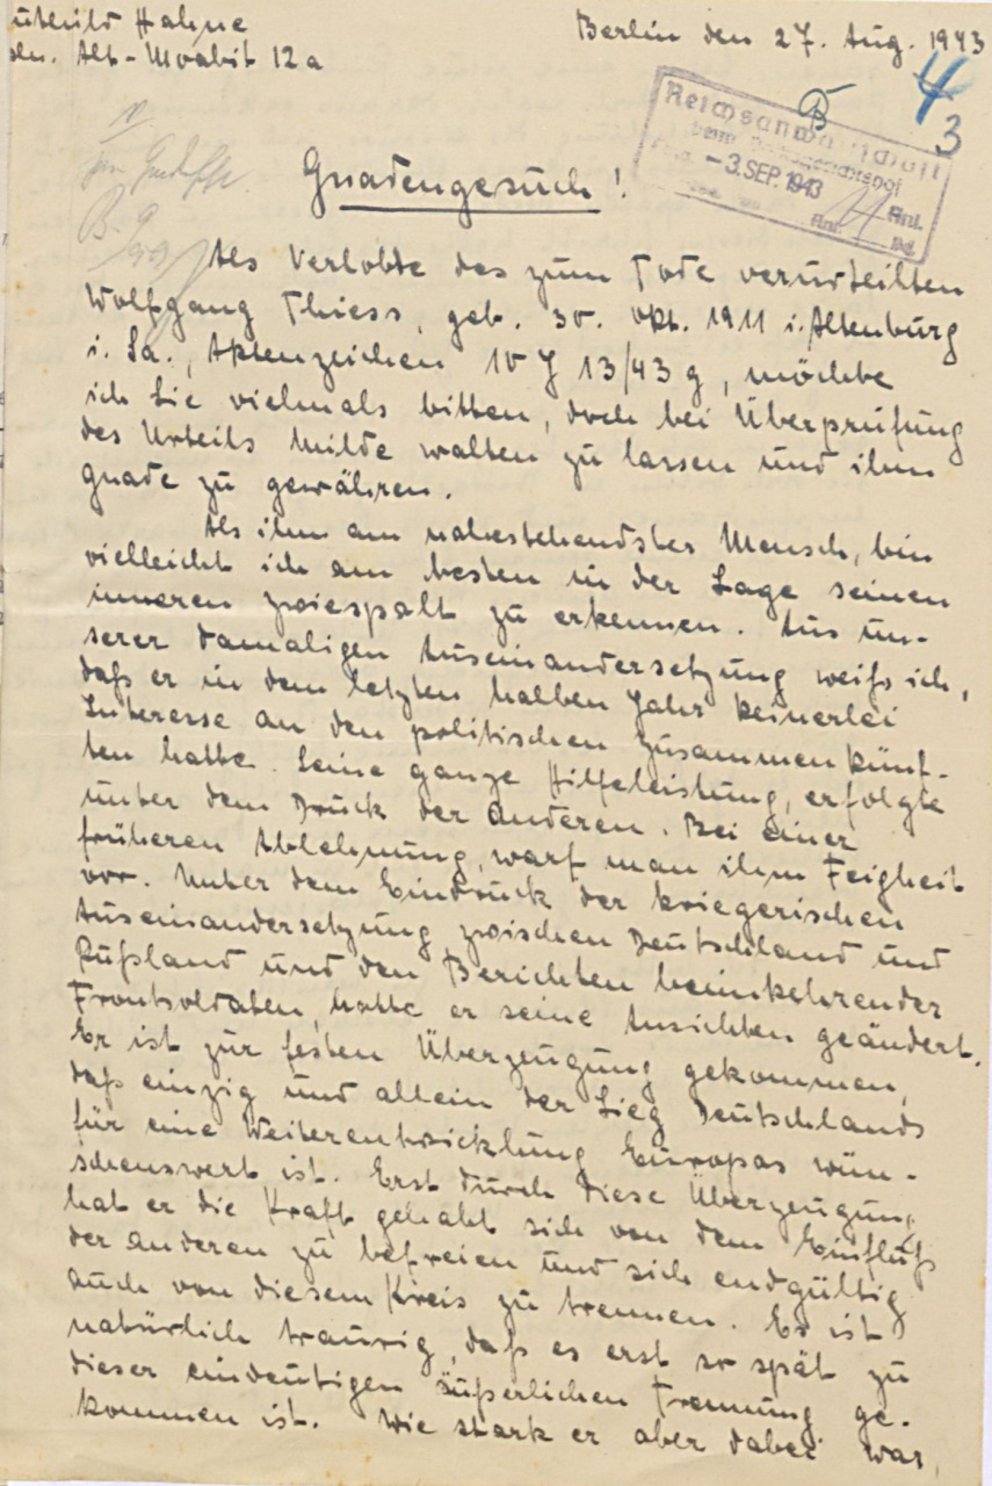 Hahne
Berlin den 27. Aug. 1943
Bln. Alt-Moabit 12a
4
3
B
Reichsanwaltschaft
beim Volksgerichtshof
-3.SEP.1943
Anl.
Gnadengesuch!
Als Verlobte des zum Tode verurteilten
Wolfgang Thiess, geb. 30. Okt. 1911 i. Altenburg
i. Sa., Aktenzeichen 10 J 13/43 g, möchte
ich Sie vielmals bitten, doch bei Überprüfung
des Urteils Milde walten zu lassen und ihm
Gnade zu gewähren.
Als ihm am nahestehendster Mensch, bin
vielleicht ich am besten in der Lage seinen
inneren Zwiespalt zu erkennen. Aus un-
serer damaligen Auseinandersetzung weiß ich,
daß er in dem letzten halben Jahr keinerlei
Interesse an den politischen Zusammenkünf-
ten hatte. Seine ganze Hilfeleistung, erfolgte
unter dem Druck der Anderen. Bei einer
früheren Ablehnung, warf man ihm Feigheit
vor. Unter dem Eindruck der kriegerischen
Auseinandersetzung zwischen Deutschland und
Rußland und den Berichten heimkehrender
Frontsoldaten, hatte er seine Ansichten geändert.
Er ist zur festen Überzeugung gekommen,
daß einzig und allein der Sieg Deutschlands
für eine Weiterentwicklung Europas wün-
schenswert ist. Erst durch diese Überzeugung,
hat er die Kraft gehabt sich von dem Einfluß
der anderen zu befreien und sich endgültig
auch von diesem Kreis zu trennen. Es ist
natürlich traurig, daß es erst so spät zu
dieser eindeutigen äußerlichen Trennung ge-
kommen ist. Wie stark er aber dabei war,